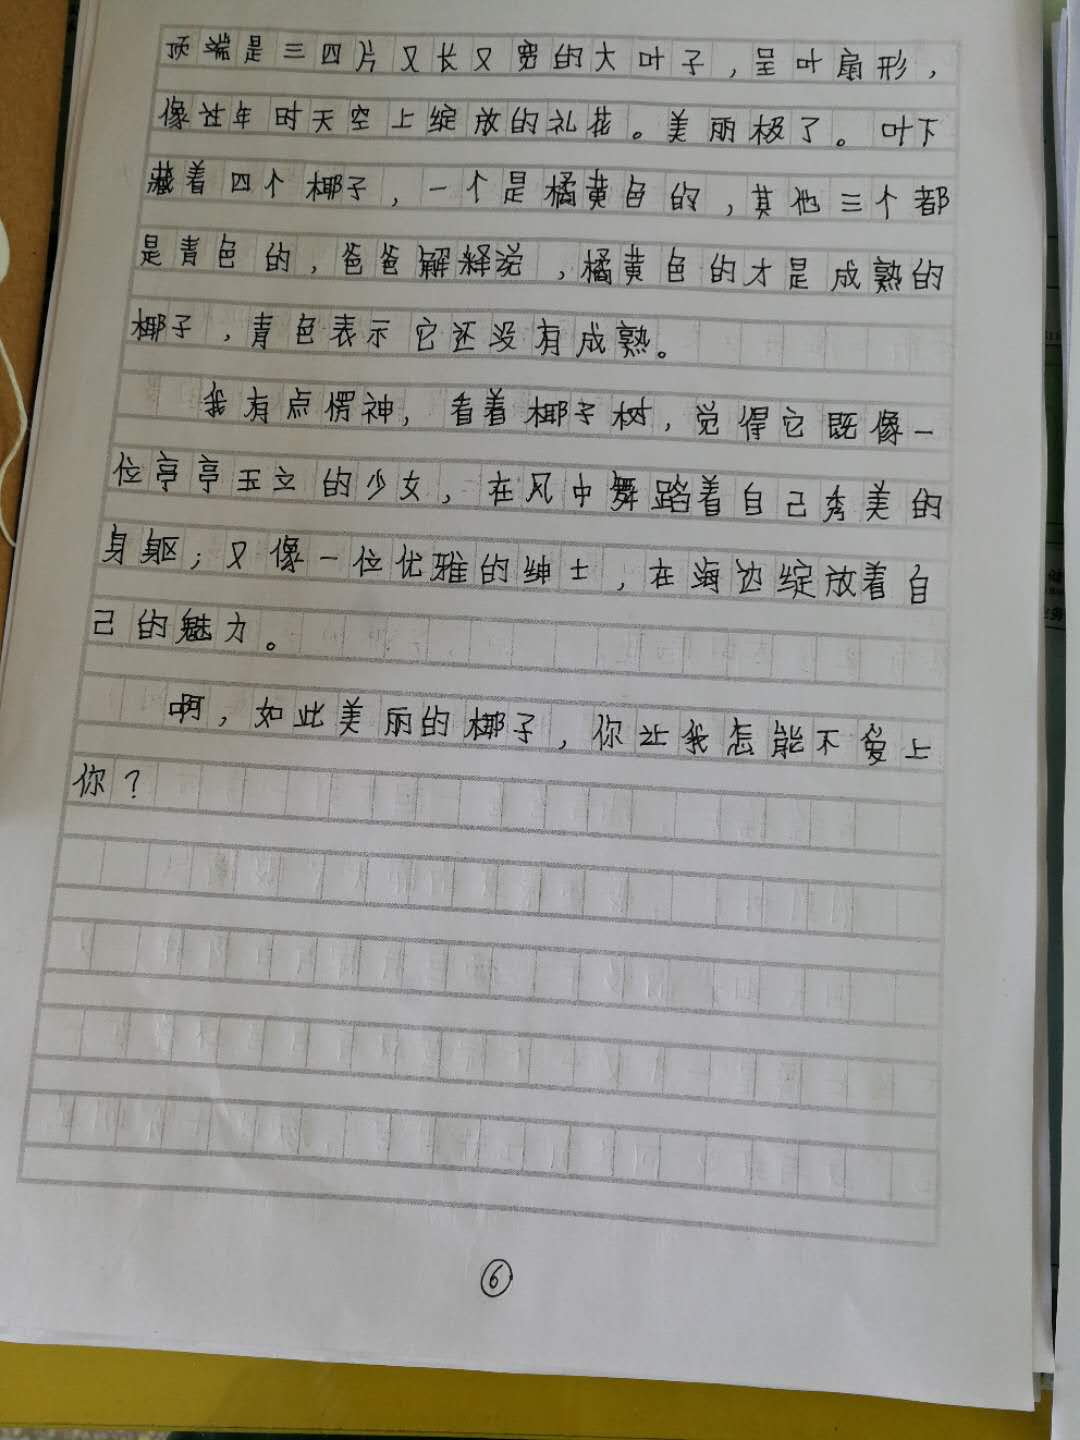 顶端是三四片又长又宽的大叶子，呈叶扇形，
像过年时天空上绽放的礼花。美丽极了。叶下
藏着四个椰子，一个是橘黄色的，其他三个都
是青色的，爸爸解释说，橘黄色的才是成熟的
椰子，青色表示它还没有成熟。
我有点愣神，看着椰子树，觉得它既像一
位亭亭玉立的少女，在风中舞蹈着自己秀美的
身躯；又像一位优雅的绅士，在海边绽放着自
己的魅力。
啊，如此美丽的椰子，你让我怎能不爱上
你？
6